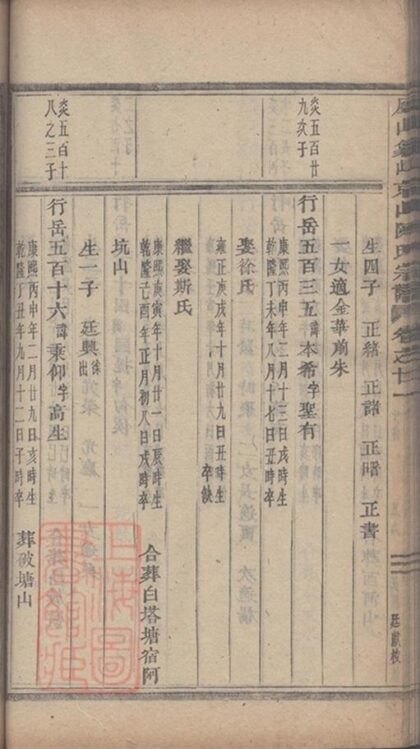 陳氏宗譜卷之廿一
生四子 正緒 正諸 正昭 正書
一女適金華前朱
炎五百廿
九亥子
行岳五百三五諱本希字聖有
康熙丙申年三月十三日戌時生
乾隆丁未年八月十三日亥時卒
娶徐氏
雍正庚戌年十月廿九日丑時生
卒缺
繼娶斯氏
康熙年十一月廿一日辰時生
乾隆己酉年正月初八日戌時卒
合葬白塔塘宿阿
坑山
生一子 廷興徐出
炎五百十
八之三子
行岳五百十六諱秉仰字高生
康熙丙申年二月廿九日亥時生
乾隆丁丑年九月十二日子時卒
葬破塘山